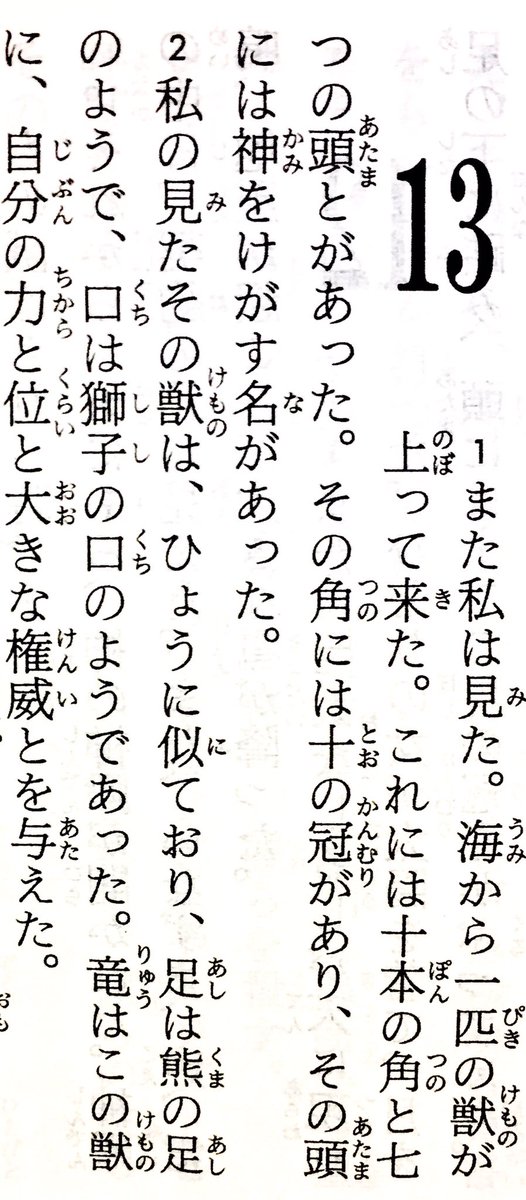 13
1また私は見た。海から一匹の獣が
上って来た。これには十本の角と七
つの頭とがあった。その角には十の冠があり、その頭
には神をけがす名があった。
2私の見たその獣は、ひょうに似ており、足は熊の足
のようで、口は獅子の口のようであった。竜はこの獣
に、自分の力と位と大きな権威とを与えた。